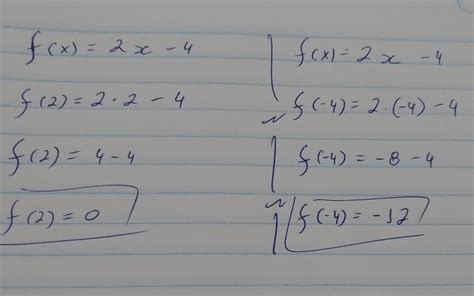 f(x) = 2x - 4
f(2) = 2 · 2 - 4
f(2) = 4 - 4
f(2) = 0
f(x) = 2x - 4
f(-4) = 2·(-4) - 4
f(-4) = -8 - 4
f(-4) = -12